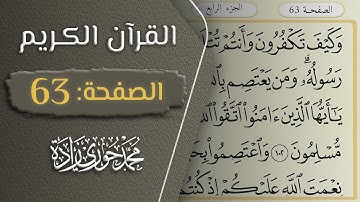 القرآن الكريم
الصفحة: 63
محمد حوري زادة
الصفحة 63
الجزء الرابع
وَكَيْفَ تَكْفُرُونَ وَأَنتُمْ تُتْلَ
رَسُولُهُۥ ۗ وَمَن يَعْتَصِم بِٱللَّ
يَٰٓأَيُّهَا ٱلَّذِينَ ءَامَنُوا۟ ٱتَّقُوا۟ ٱللَّ
مُّسْلِمُونَ ١٠٢ وَٱعْتَصِمُوا۟ بِحَ
نِعْمَتَ ٱللَّهِ عَلَيْكُمْ إِذْ كُنتُ